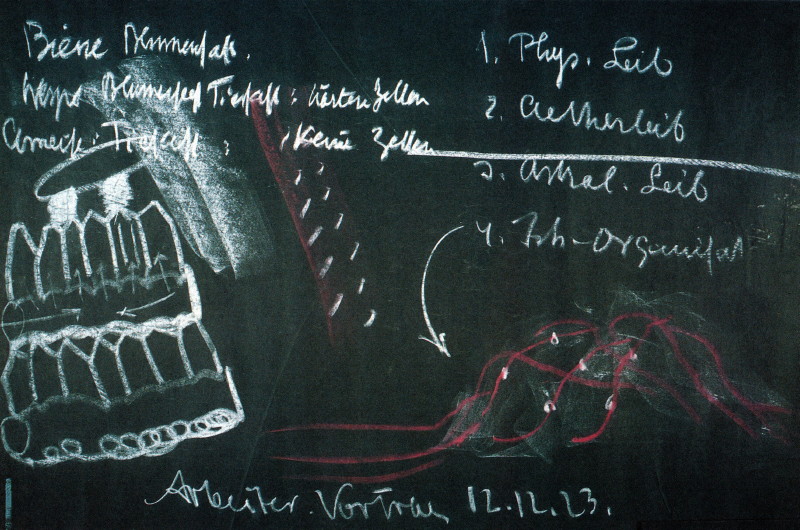 Biene Blumensaft.
Wespe Blumensaft Tiersaft : härtere Zellen
Ameise : Tiersaft ; Keine Zellen
1. Phys. Leib
2. Aetherleib
3. Astral. Leib
4. Ich-Organisat
Arbeiter. Vortrag 12.12.23.